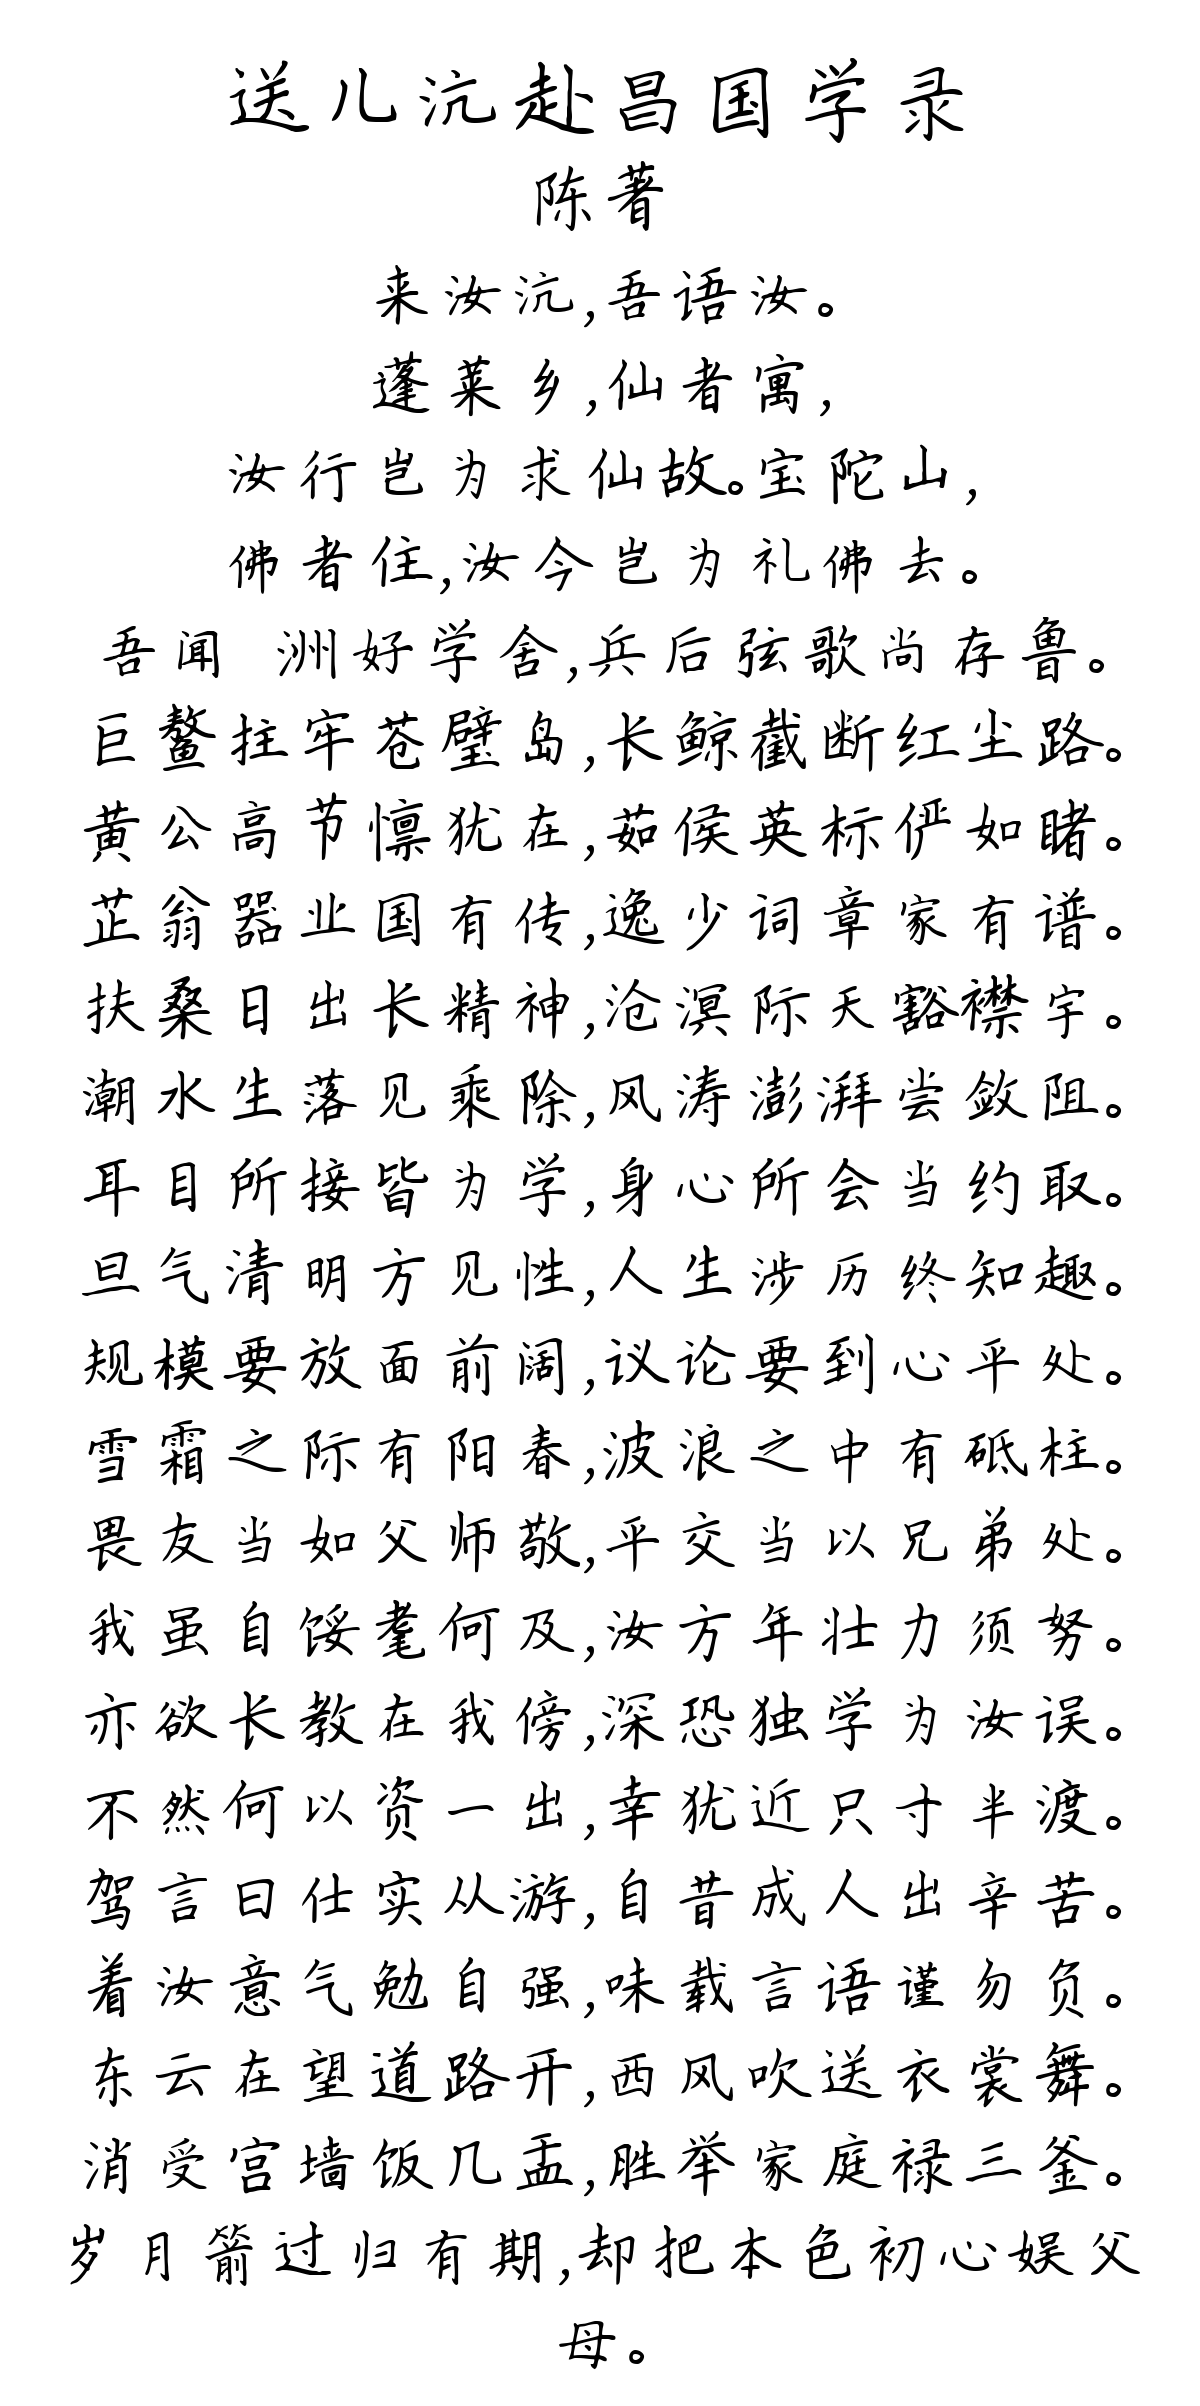 送儿沆赴昌国学录
陈著
来汝沆,吾语汝。
蓬莱乡,仙者寓,
汝行岂为求仙故。宝陀山,
佛者住,汝今岂为礼佛去。
吾闻 洲好学舍,兵后弦歌尚存鲁。
巨鳌拄牢苍壁岛,长鲸截断红尘路。
黄公高节懔犹在,茹侯英标俨如睹。
芷翁器业国有传,逸少词章家有谱。
扶桑日出长精神,沧溟际天豁襟宇。
潮水生落见乘除,风涛澎湃尝敛阻。
耳目所接皆为学,身心所会当约取。
旦气清明方见性,人生涉历终知趣。
规模要放面前阔,议论要到心平处。
雪霜之际有阳春,波浪之中有砥柱。
畏友当如父师敬,平交当以兄弟处。
我虽自馁耄何及,汝方年壮力须努。
亦欲长教在我傍,深恐独学为汝误。
不然何以资一出,幸犹近只寸半渡。
驾言曰仕实从游,自昔成人出辛苦。
着汝意气勉自强,味载言语谨勿负。
东云在望道路开,西风吹送衣裳舞。
消受宫墙饭几盂,胜举家庭禄三釜。
岁月箭过归有期,却把本色初心娱父
母。